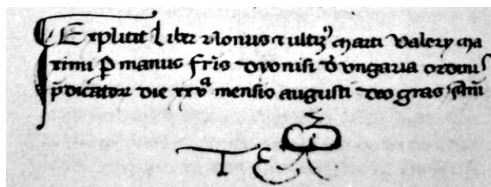 Explicit Liber nonus et ultimus Marci Valerij Ma
ximi per manus fris dyonisi de ungaria ordinis
predicator die xxva mensis augusti deo gras